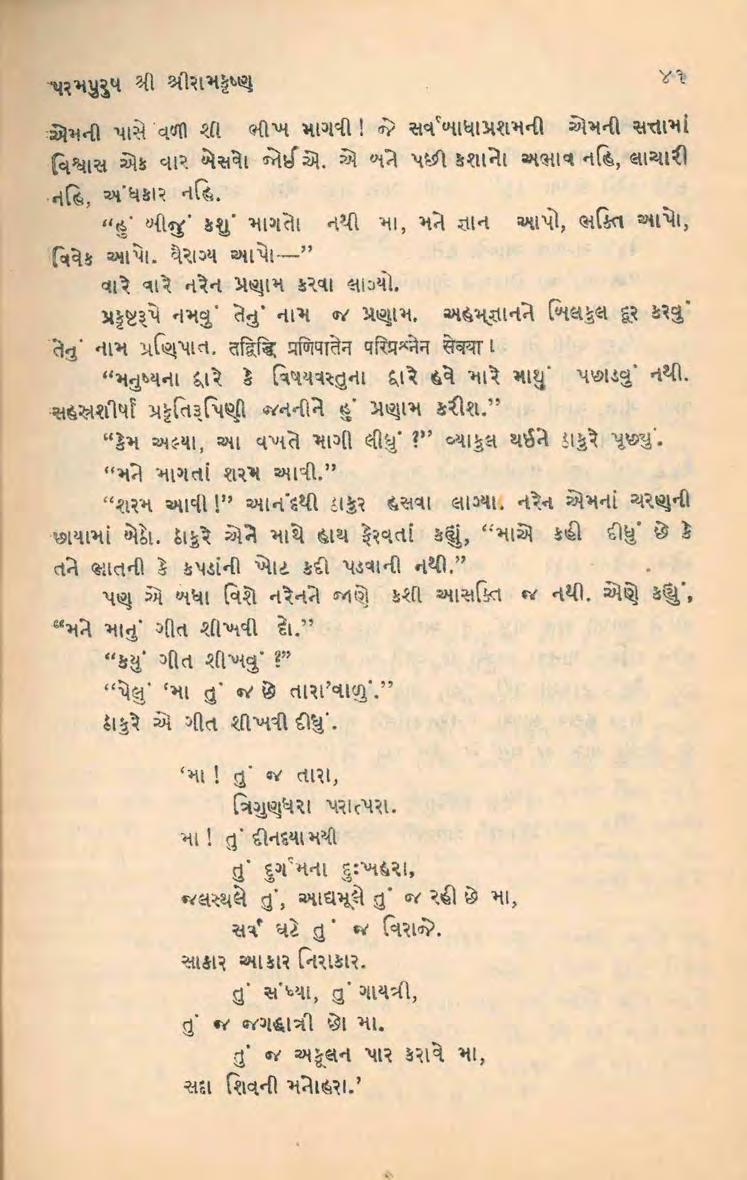 પરમપુરુષ શ્રી શ્રીરામકૃષ્ણ ૪૧
એમની પાસે વળી શી ભીખ માગવી! જે સર્વબાધાપ્રશમની એમની સત્તામાં
વિશ્વાસ એક વાર બેસવો જોઈએ. એ બને પછી કશાનો અભાવ નહિ, લાચારી
નહિ, અંધકાર નહિ.
“હું બીજું કશું માગતો નથી મા, મને જ્ઞાન આપો, ભક્તિ આપો,
વિવેક આપો. વૈરાગ્ય આપો—”
વારે વારે નરેન પ્રણામ કરવા લાગ્યો.
પ્રકૃષ્ટરૂપે નમવું તેનું નામ જ પ્રણામ. અહમ્જ્ઞાનને બિલકુલ દૂર કરવું
તેનું નામ પ્રણિપાત. तद्विद्धि प्रणिपातेन परिप्रश्नेन सेवया ।
“મનુષ્યના દ્વારે કે વિષયવસ્તુના દ્વારે હવે મારે માથું પછાડવું નથી.
સહસ્રશીર્ષા પ્રકૃતિરૂપિણી જનનીને હું પ્રણામ કરીશ.”
“કેમ અલ્યા, આ વખતે માગી લીધું ?” વ્યાકુલ થઈને ઠાકુરે પૂછ્યું.
“મને માગતાં શરમ આવી.”
“શરમ આવી!” આનંદથી ઠાકુર હસવા લાગ્યા. નરેન એમનાં ચરણની
છાયામાં બેઠો. ઠાકુરે એને માથે હાથ ફેરવતાં કહ્યું, “માએ કહી દીધું છે કે
તને ભાતની કે કપડાંની ખોટ કદી પડવાની નથી.”
પણ એ બધા વિશે નરેનને જાણે કશી આસક્તિ જ નથી. એણે કહ્યું,
“મને માનું ગીત શીખવી દો.”
“કયું ગીત શીખવું ?”
“પેલું ‘મા તું જ છે તારા’વાળું.”
ઠાકુરે એ ગીત શીખવી દીધું.
‘મા ! તું જ તારા,
ત્રિગુણધરા પરાત્પરા.
મા ! તું દીનદયામયી
તું દુર્ગમના દુઃખહરા,
જલસ્થલે તું, આદ્યમૂલે તું જ રહી છે મા,
સર્વ ઘટે તું જ વિરાજે.
સાકાર આકાર નિરાકાર.
તું સંધ્યા, તું ગાયત્રી,
તું જ જગદ્ધાત્રી છો મા.
તું જ અકૂલન પાર કરાવે મા,
સદા શિવની મનોહરા.’